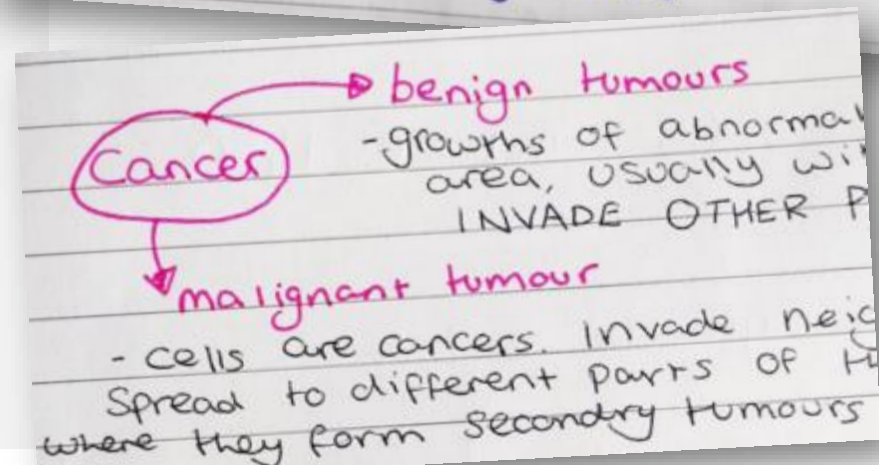 benign tumours
Cancer
-growths of abnormal
area, usually
INVADE OTHER
malignant tumour
- cells are cancers. Invade
Spread to different parts of
where they form secondry tumours